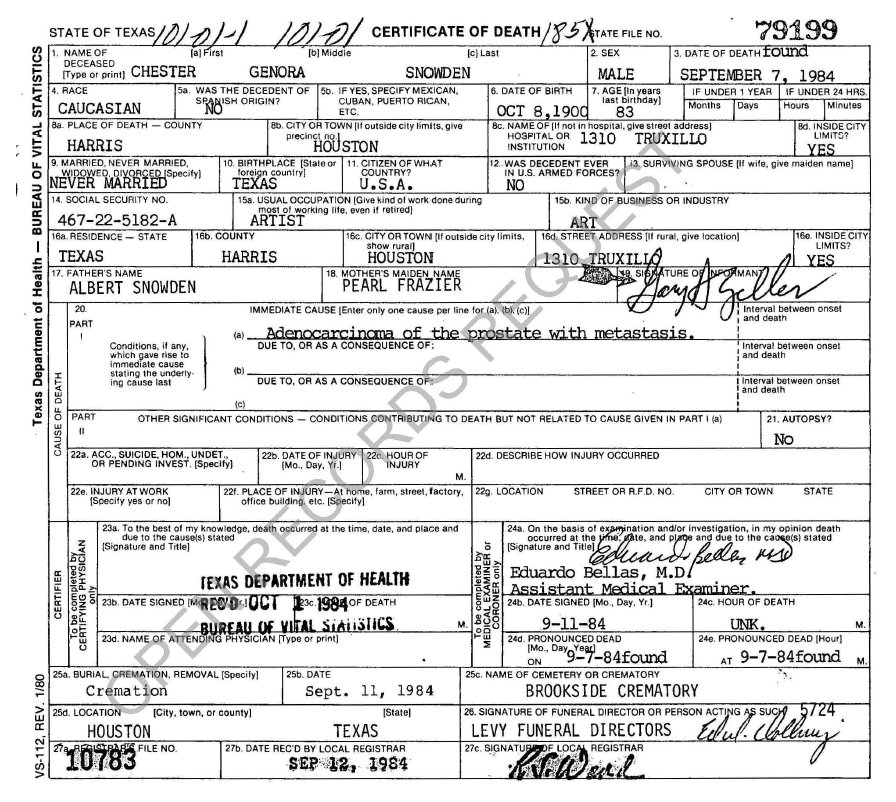 STATE OF TEXAS 101-01-1 101-01 CERTIFICATE OF DEATH 185X STATE FILE NO. 79199
1. NAME OF DECEASED [Type or print] [a] First [b] Middle [c] Last 2. SEX 3. DATE OF DEATH found
CHESTER GENORA SNOWDEN MALE SEPTEMBER 7, 1984
4. RACE 5a. WAS THE DECEDENT OF SPANISH ORIGIN? 5b. IF YES, SPECIFY MEXICAN, CUBAN, PUERTO RICAN, ETC. 6. DATE OF BIRTH 7. AGE [In years last birthday] IF UNDER 1 YEAR IF UNDER 24 HRS.
Months Days Hours Minutes
CAUCASIAN NO OCT 8,1900 83
8a. PLACE OF DEATH — COUNTY 8b. CITY OR TOWN [If outside city limits, give precinct no.] 8c. NAME OF [If not in hospital, give street address] HOSPITAL OR INSTITUTION 8d. INSIDE CITY LIMITS?
HARRIS HOUSTON 1310 TRUXILLO YES
9. MARRIED, NEVER MARRIED, WIDOWED, DIVORCED [Specify] 10. BIRTHPLACE [State or foreign country] 11. CITIZEN OF WHAT COUNTRY? 12. WAS DECEDENT EVER IN U.S. ARMED FORCES? 13. SURVIVING SPOUSE [If wife, give maiden name]
NEVER MARRIED TEXAS U.S.A. NO
14. SOCIAL SECURITY NO. 15a. USUAL OCCUPATION [Give kind of work done during most of working life, even if retired] 15b. KIND OF BUSINESS OR INDUSTRY
467-22-5182-A ARTIST ART
16a. RESIDENCE — STATE 16b. COUNTY 16c. CITY OR TOWN [If outside city limits, show rural] 16d. STREET ADDRESS [If rural, give location] 16e. INSIDE CITY LIMITS?
TEXAS HARRIS HOUSTON 1310 TRUXILLO YES
17. FATHER'S NAME 18. MOTHER'S MAIDEN NAME 19. SIGNATURE OF INFORMANT
ALBERT SNOWDEN PEARL FRAZIER
20. PART I IMMEDIATE CAUSE [Enter only one cause per line for (a), (b), (c)] Interval between onset and death
(a) Adenocarcinoma of the prostate with metastasis.
Conditions, if any, which gave rise to immediate cause stating the underlying cause last
DUE TO, OR AS A CONSEQUENCE OF: Interval between onset and death
(b)
DUE TO, OR AS A CONSEQUENCE OF: Interval between onset and death
(c)
CAUSE OF DEATH
PART II OTHER SIGNIFICANT CONDITIONS — CONDITIONS CONTRIBUTING TO DEATH BUT NOT RELATED TO CAUSE GIVEN IN PART I (a) 21. AUTOPSY?
No
22a. ACC., SUICIDE, HOM., UNDET., OR PENDING INVEST. [Specify] 22b. DATE OF INJURY [Mo., Day, Yr.] 22c. HOUR OF INJURY M. 22d. DESCRIBE HOW INJURY OCCURRED
22e. INJURY AT WORK [Specify yes or no] 22f. PLACE OF INJURY—At home, farm, street, factory, office building, etc. [Specify] 22g. LOCATION STREET OR R.F.D. NO. CITY OR TOWN STATE
CERTIFIER
To be completed by CERTIFYING PHYSICIAN only
23a. To the best of my knowledge, death occurred at the time, date, and place and due to the cause(s) stated
[Signature and Title]
TEXAS DEPARTMENT OF HEALTH
23b. DATE SIGNED [Mo., Day, Yr.] REC'D OCT 1 1984 23c. HOUR OF DEATH M.
BUREAU OF VITAL STATISTICS
23d. NAME OF ATTENDING PHYSICIAN [Type or print]
To be completed by MEDICAL EXAMINER or CORONER only
24a. On the basis of examination and/or investigation, in my opinion death occurred at the time, date, and place and due to the cause(s) stated
[Signature and Title] Eduardo Bellas MD
Eduardo Bellas, M.D.
Assistant Medical Examiner.
24b. DATE SIGNED [Mo., Day, Yr.] 24c. HOUR OF DEATH
9-11-84 UNK. M.
24d. PRONOUNCED DEAD [Mo., Day, Year] 24e. PRONOUNCED DEAD [Hour]
ON 9-7-84found AT 9-7-84found M.
25a. BURIAL, CREMATION, REMOVAL [Specify] 25b. DATE 25c. NAME OF CEMETERY OR CREMATORY
Cremation Sept. 11, 1984 BROOKSIDE CREMATORY
25d. LOCATION [City, town, or county] [State] 26. SIGNATURE OF FUNERAL DIRECTOR OR PERSON ACTING AS SUCH 5724
HOUSTON TEXAS LEVY FUNERAL DIRECTORS
27a. REGISTRAR'S FILE NO. 27b. DATE REC'D BY LOCAL REGISTRAR 27c. SIGNATURE OF LOCAL REGISTRAR
10783 SEP 12, 1984
Texas Department of Health — BUREAU OF VITAL STATISTICS
VS-112, REV. 1/80
OPEN RECORDS REQUEST